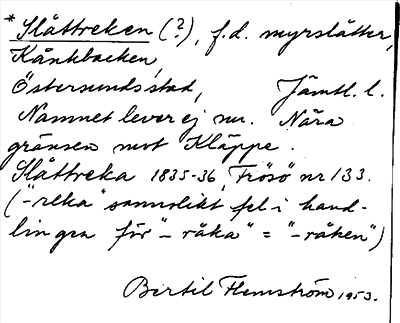 * Slåttreken (?), f.d. myrslåtter,
Kånkbacken,
Östersunds stad, Jämtl. l.
Namnet lever ej nu. Nära
gränsen mot Kläppe.
Slåttreka 1835-36, Frösö nr 133.
("-reka" sannolikt fel i hand-
lingra för "-råka" = "-råken")
Bertil Flemström 1953.